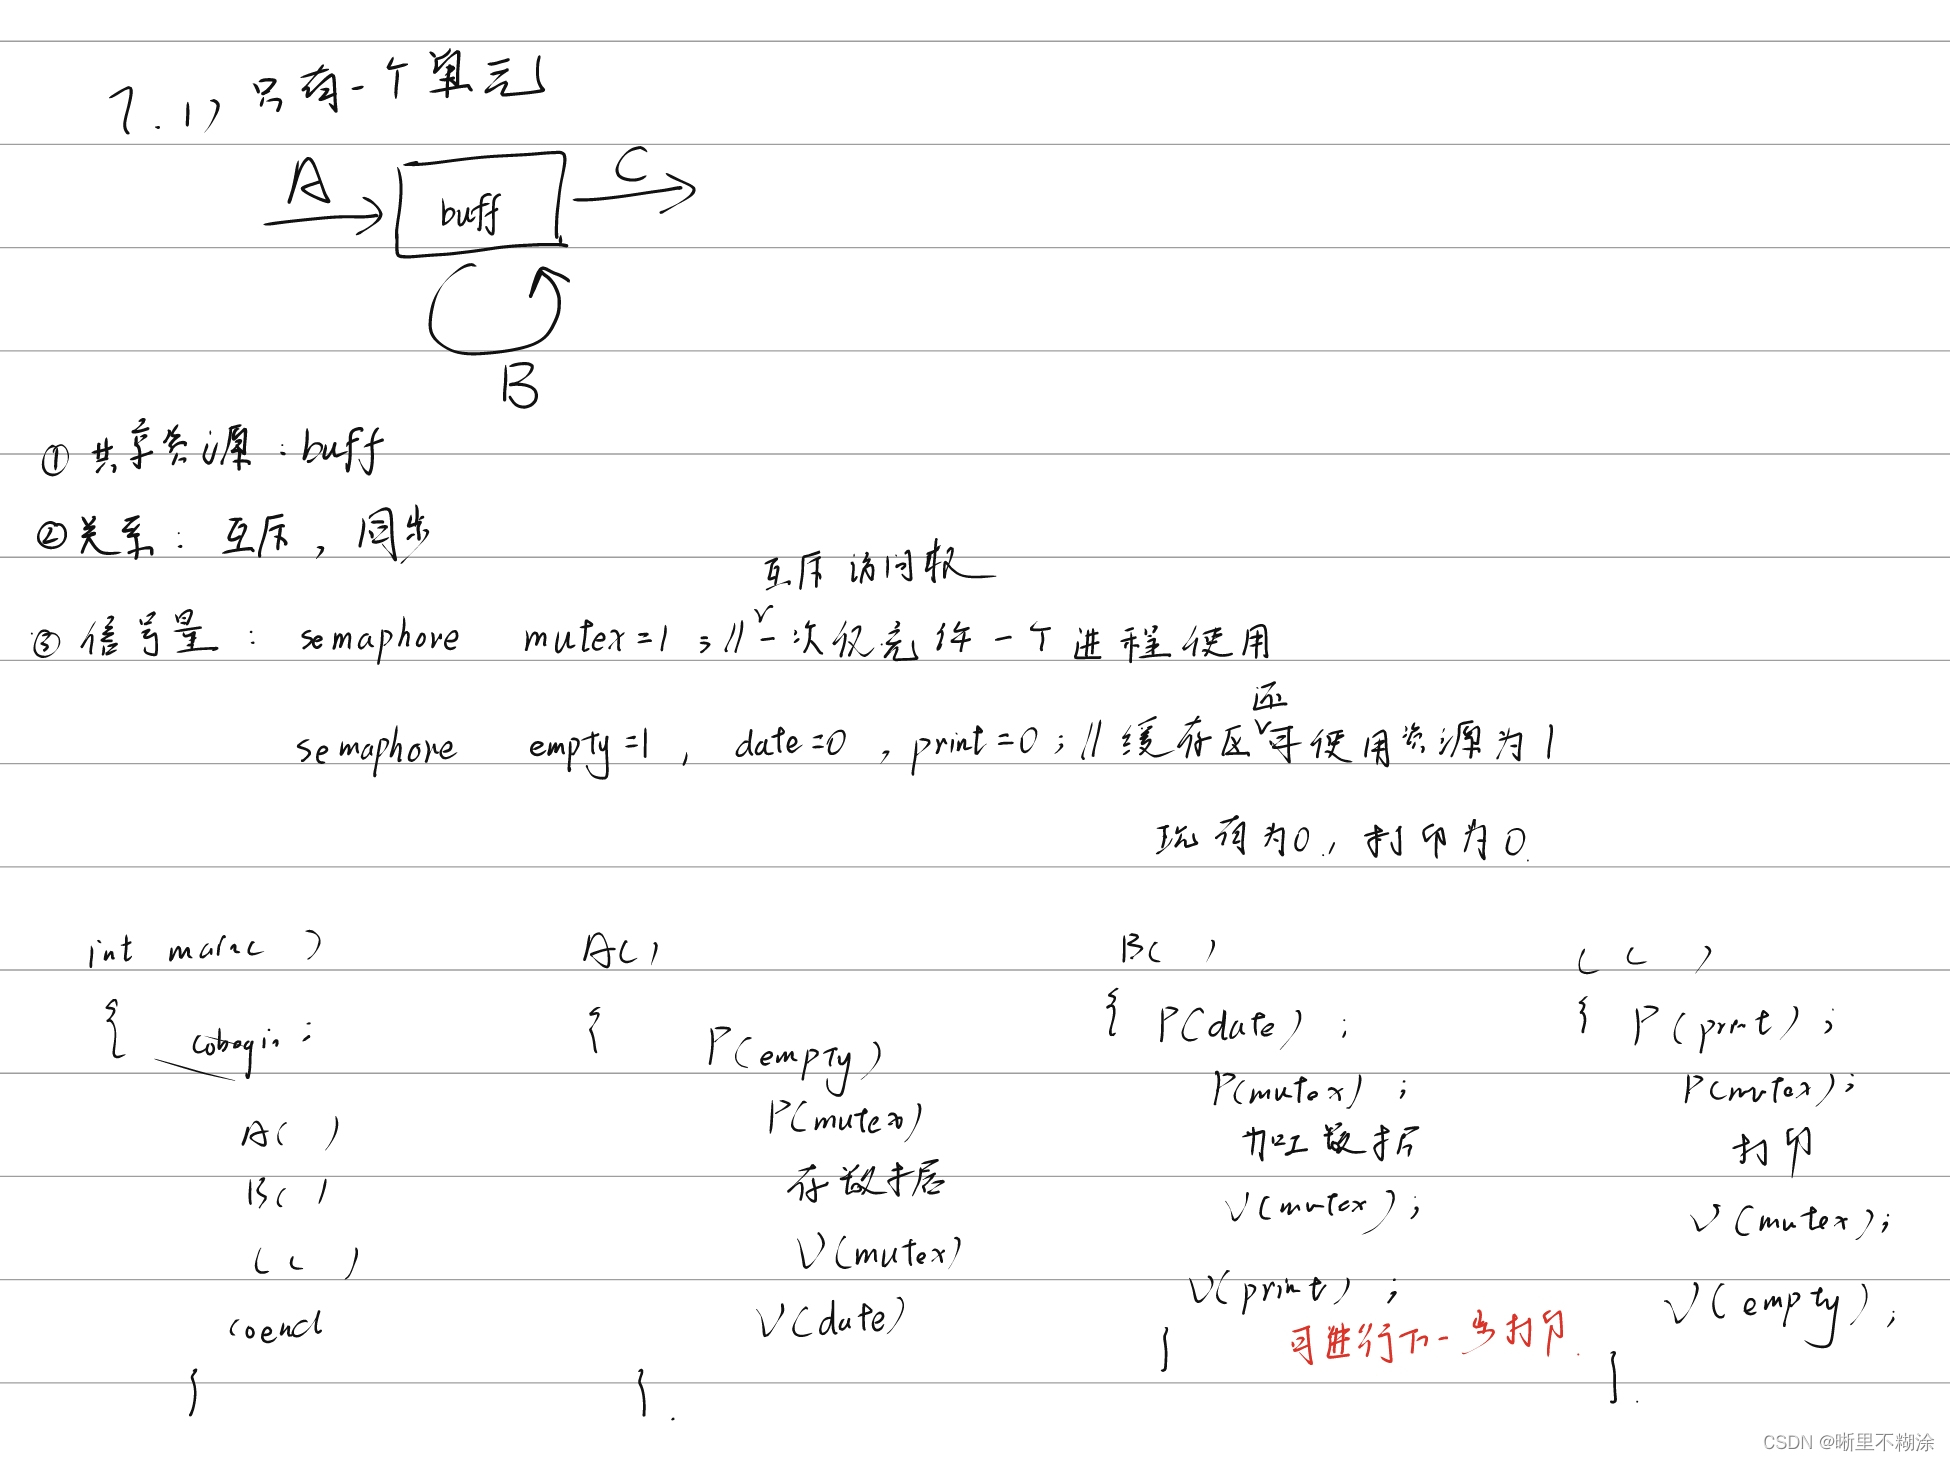 7.1) 只有一个单元
A
buff
C
B
① 共享资源:buff
② 关系: 互斥, 同步
互斥访问权
③ 信号量: semaphore mutex=1;//一次仅允许一个进程使用
还
semaphore empty=1, date=0, print=0;//缓存区可使用资源为1
现有为0, 打印为0.
int main( )
{ cobegin:
A( )
B( )
C( )
coend
}
A()
{
P(empty)
P(mutex)
存数据
V(mutex)
V(date)
}.
B( )
{ P(date);
P(mutex);
加工数据
V(mutex);
V(print);
可进行下一步打印.
}
C( )
{ P(print);
P(mutex);
打印
V(mutex);
V(empty);
}.
CSDN @晰里不糊涂